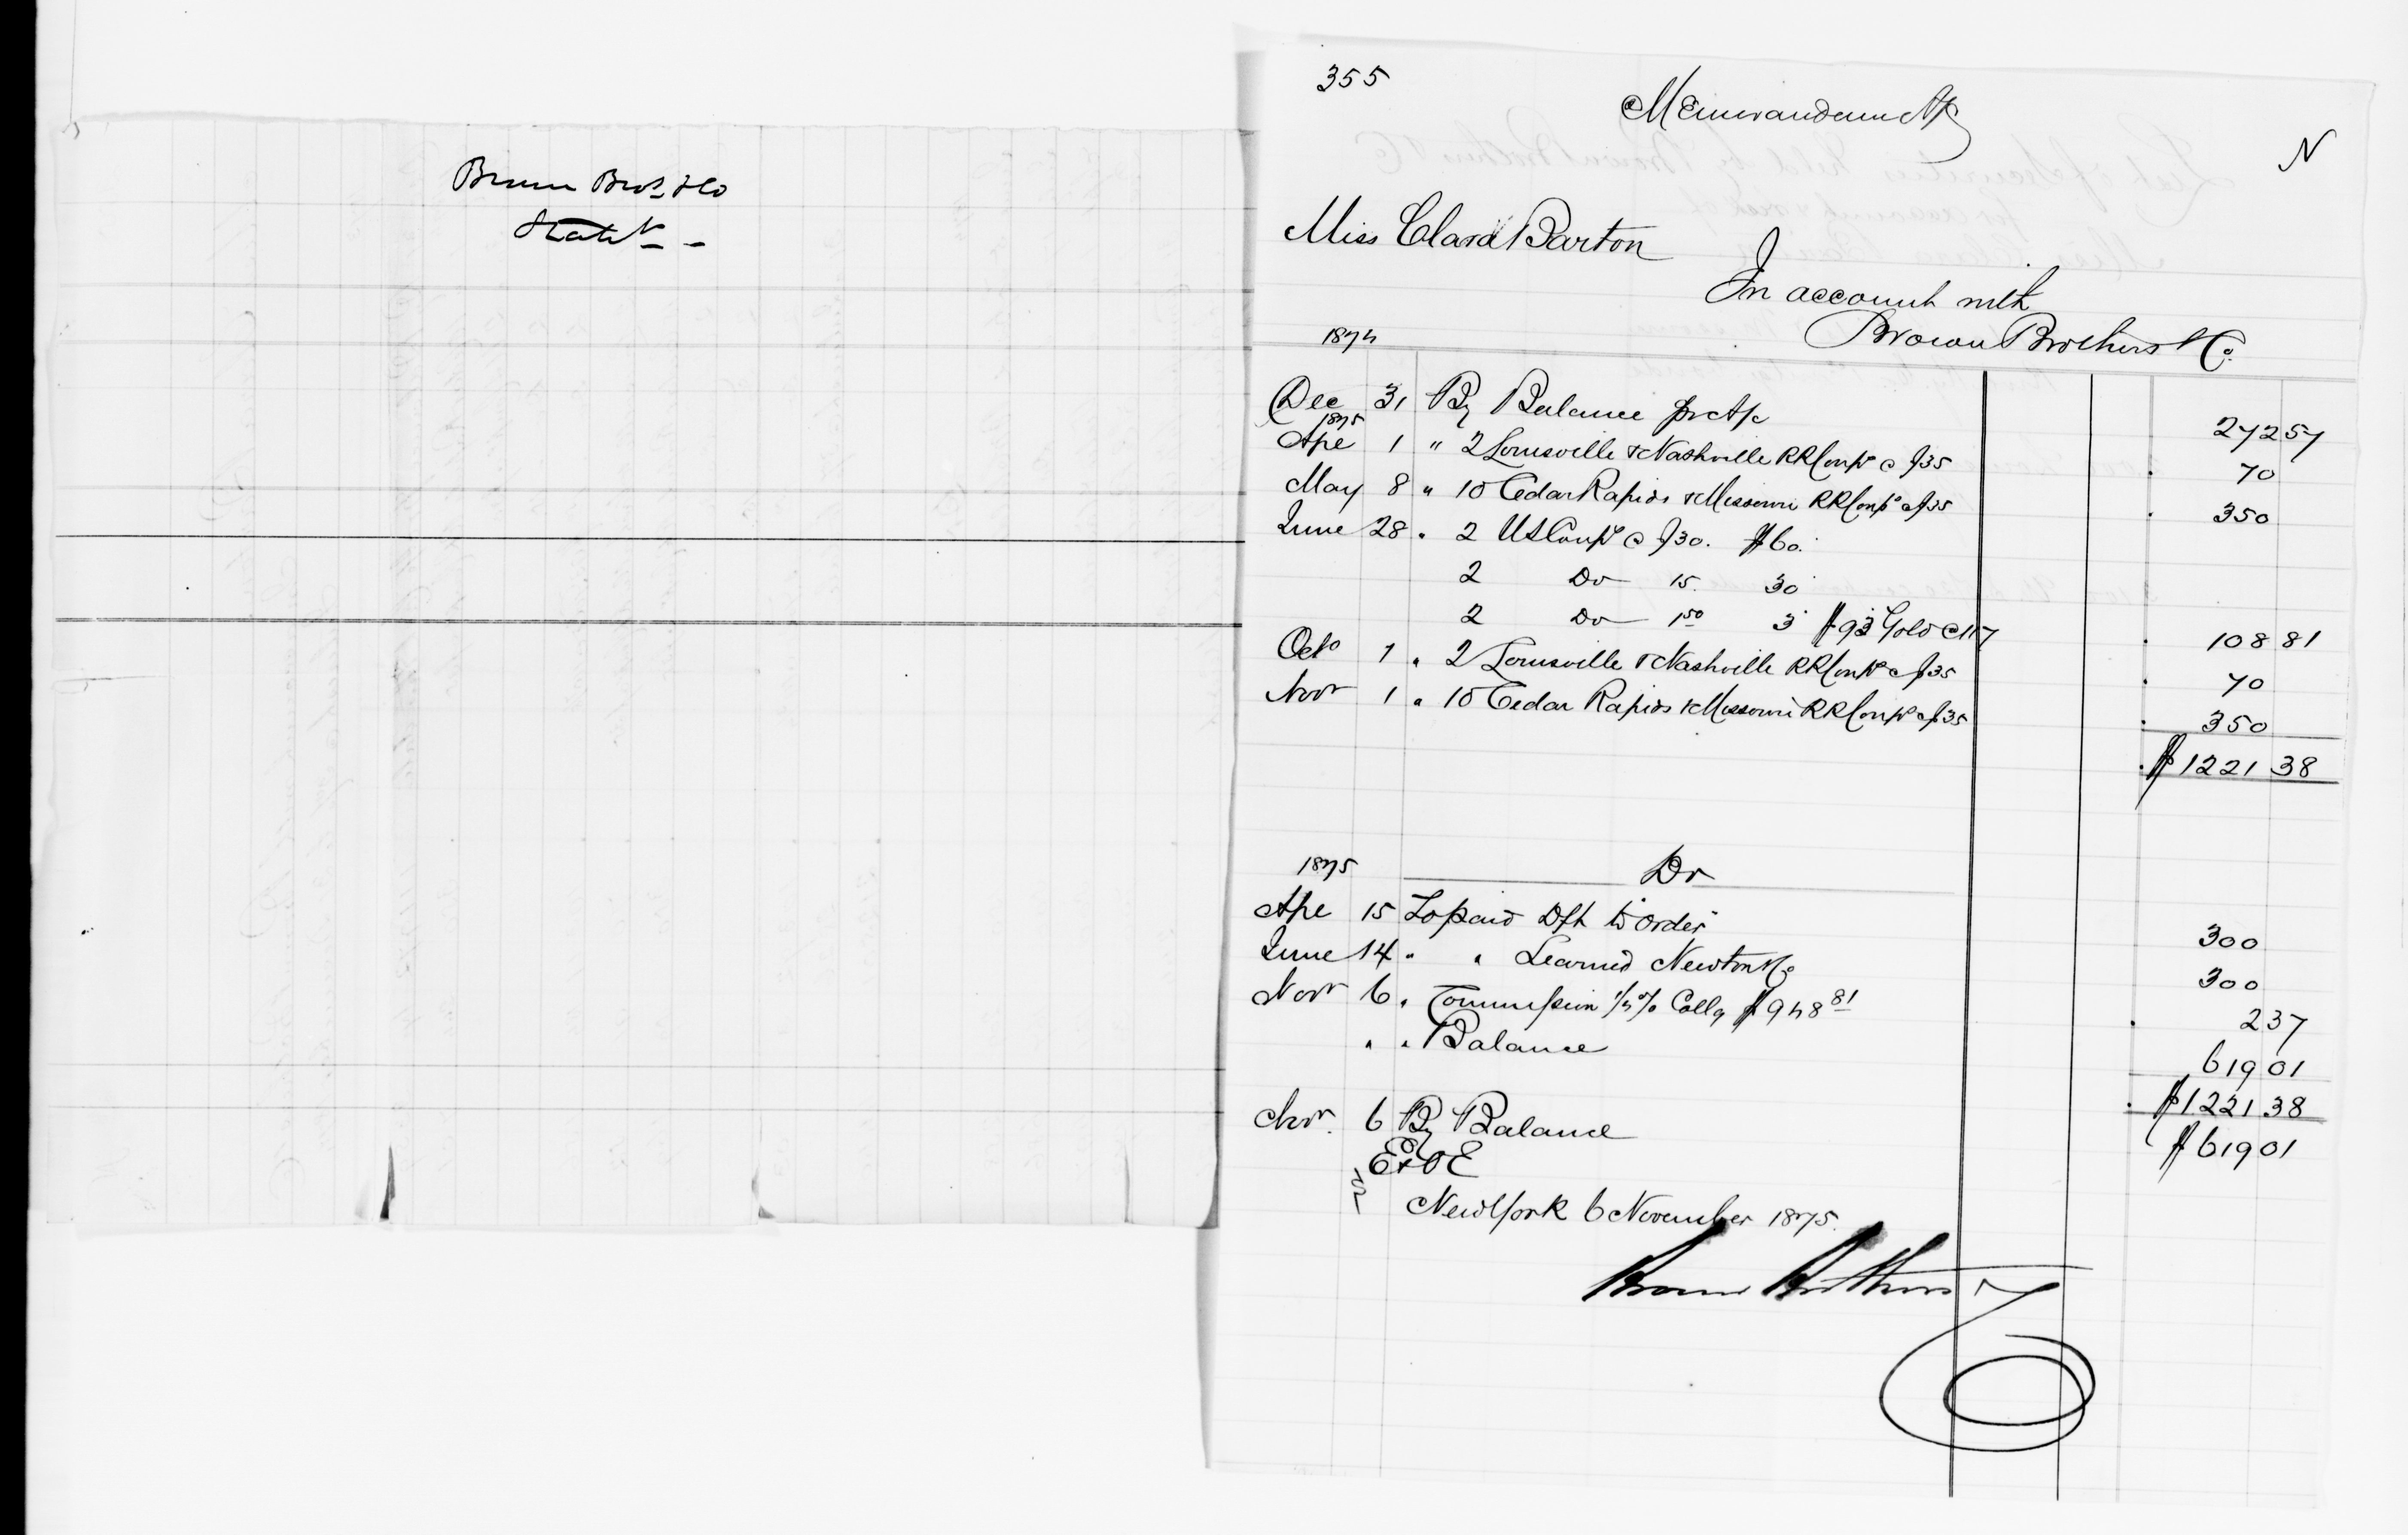 Brown Bros & Co
Statet
355
Memorandum A/c
N
Miss Clara Barton
In account with
Brown Brothers & Co.
1874
Dec 31 By Balance pr A/c 272 57
1875
Apl 1 " 2 Louisville & Nashville RR Coups @ $35 70
May 8 " 10 Cedar Rapids & Missouri RR Coups @ $35 350
June 28 " 2 US Coups @ $30. $60.
2 Do 15. 30
2 Do 1 50 3 $93 Gold @ 117 108 81
Octo 1 " 2 Louisville & Nashville RR Coups @ $35 70
Novr 1 " 10 Cedar Rapids & Missouri RR Coups @ $35 350
$1221 38
1875 Dr
Apl 15 To paid Dft to "order" 300
June 14 " " Learned Newton & Co 300
Novr 6 " Commission 1/4 % Collg $948 81 2 37
" " Balance 619 01
$1221 38
Novr. 6 By Balance $619 01
E & O E
New York 6 November 1875.
Brown Brothers & Co